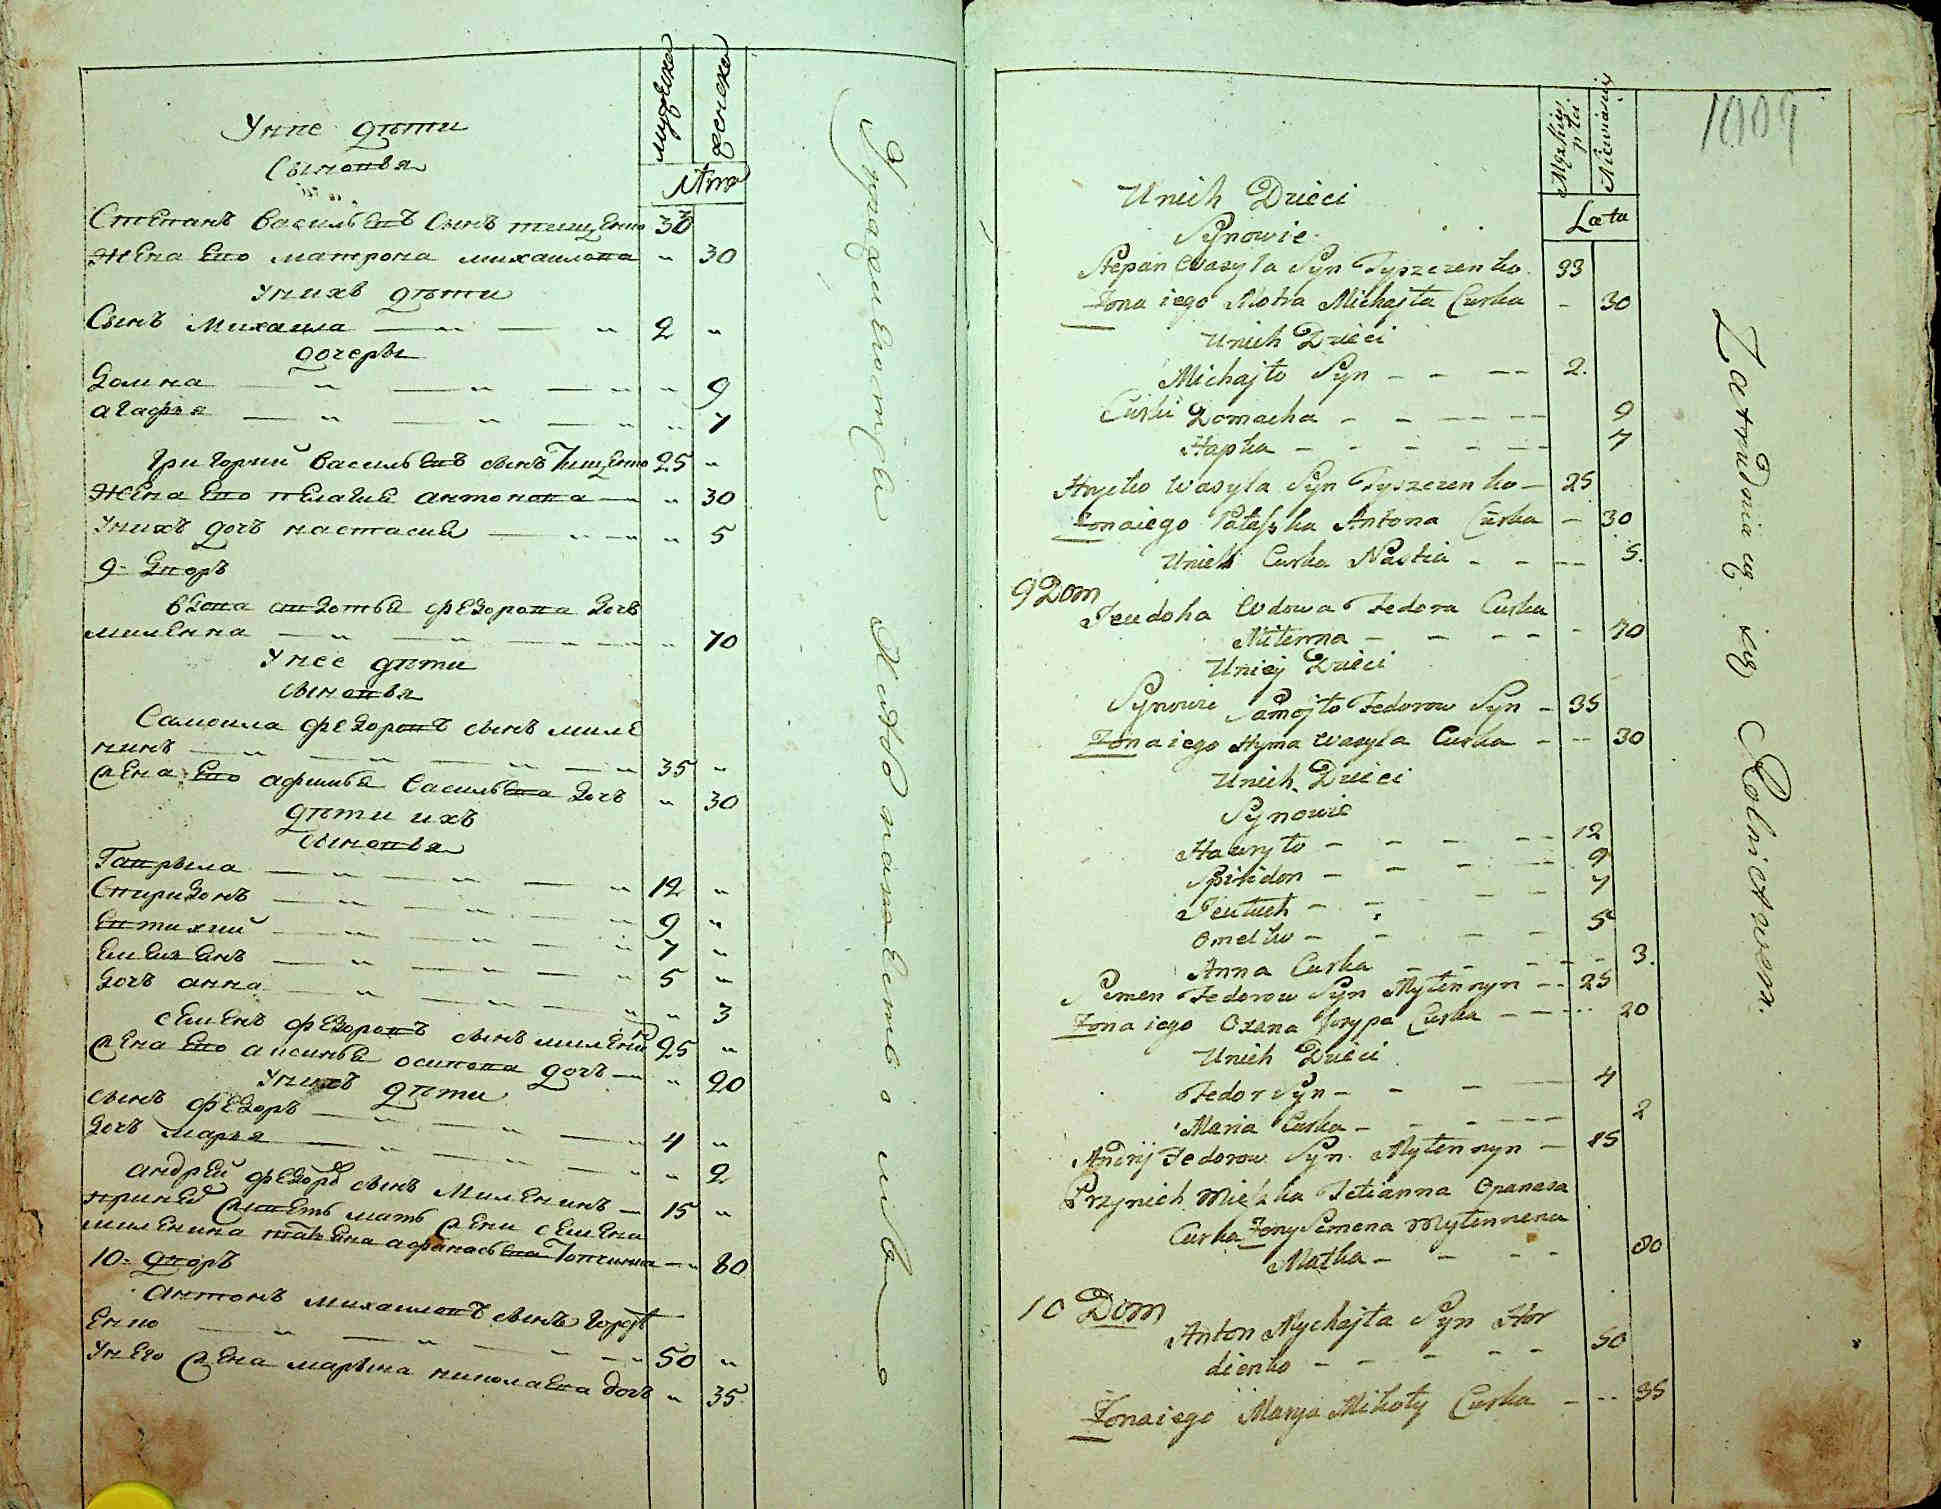 мужеска
женска
Лта
Унее дѣти
Сыновья
Степанъ Васильевъ Сынъ тищенко 33
Жена Его матрона михаилова " 30
Унихъ дѣти
Сынъ Михаила 2 "
дочеры
Домна " 9
агафья " 7
Григорий Васильевъ сынъ Тищенко 25 "
Жена Его пелагия антонова " 30
Унихъ дочъ настасия " 5
9. Дворъ
вдова евдотья федорова дочь
миленна " 70
Унее дѣти
сыновья
Самоила федоровъ сынъ миле
нинъ 35 "
жена Его афимья Васильева дочъ " 30
дѣти ихъ
сыновья
Гаврыла 12 "
Спиридонъ 9 "
Евтихий 7 "
Емелянъ 5 "
дочъ анна " 3
семенъ федоровъ сынъ миленнъ 25 "
жена Его аксинья осипова дочъ " 20
Унихъ дѣти
сынъ федоръ 4 "
дочъ марья " 2
андрей федоровъ сынъ Миленинъ 15 "
приней живетъ мать жени семена
миленина татьяна афанасьева 80
10. дворъ
антонъ михаиловъ сынъ Горд
Енко 50 "
Унего жена марына николаева дочъ " 35
Упражняются Хлебопашествомъ
1009
Męzkiey płci
Niewiasty
Lata
Unieh Dzieci
Synowie
Stepan Wasyla Syn Tyszczenko 33
Zona iego Motra Michajła Curka - 30
Unich Dzieci
Michajło Syn 2.
Curki Domacha 9
Hapka 7
Hryćko Wasyla Syn Tyszczenko 25
Zona iego Pałażka Antona Curka - 30
Unich Curka Nastia 5.
9 Dom
Jeudoha Wdowa Fedora Curka
Milenna 70
Uniey Dzieci
Synowie Samojło Fedorow Syn 35
Zona iego Hyma Wasyla Curka 30
Unich Dzieci
Synowie
Hawryło 12
Spiridon 9
Jeutuch 7
Omelko 5
Anna Curka 3.
Semen Fedorow Syn Mytennyn 25
Zona iego Oxena Josypa Curka 20
Unich Dzieci
Fedor Syn 4
Maria Curka 2
Andrij Fedorow Syn Mytennyn 15
Przynich Mieszka Tetianna Opanasa
Curka Zony Semena Mytennena
Matka 80
10 Dom
Anton Mychajła Syn Hor
dienko 50
Zona iego Marya Mikoły Curka 35
Zatrudniaią się Rolnictwem.